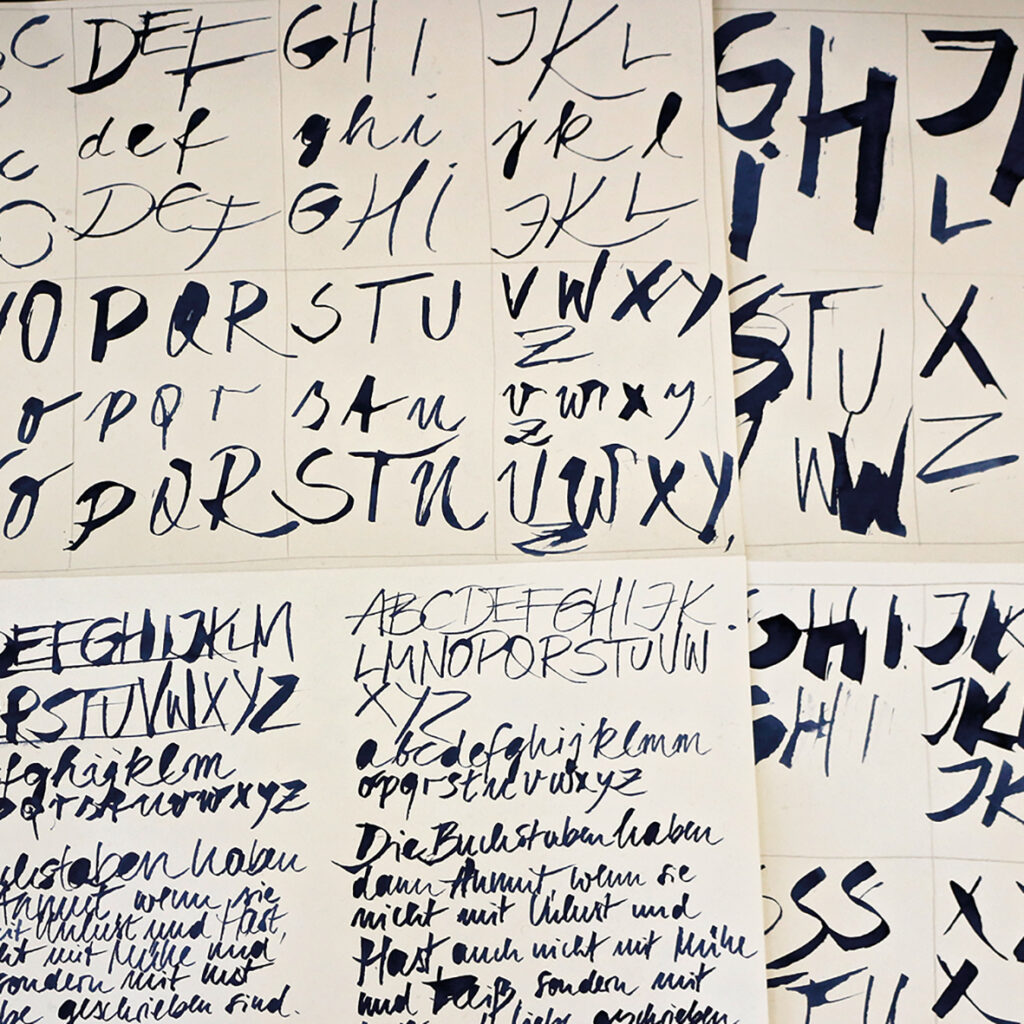 C DEF GHI JKL
def ghi jkl
C DEF GHI JKL
O P Q R S T U V W X Y
Z
o p q r s t u v w x y
z
O P Q R S T U V W X Y
Z
G H J
I L
S T U X
W W Z
DEFGHIJKLM
RSTUVWXYZ
fghijklm
opqrstuvwxyz
Buchstaben haben
Anmut wenn sie
mit Unlust und Hast,
nicht mit Mühe und
sondern mit Lust
geschrieben sind.
ABCDEFGHIJK
LMNOPQRSTUVW
XYZ
abcdefghijklmn
opqrstuvwxyz
Die Buchstaben haben
dann Anmut, wenn sie
nicht mit Unlust und
Hast, auch nicht mit Mühe
und Fleiß, sondern mit
Liebe geschrieben
H I JK
G H I JK
JK
S S X
T U X